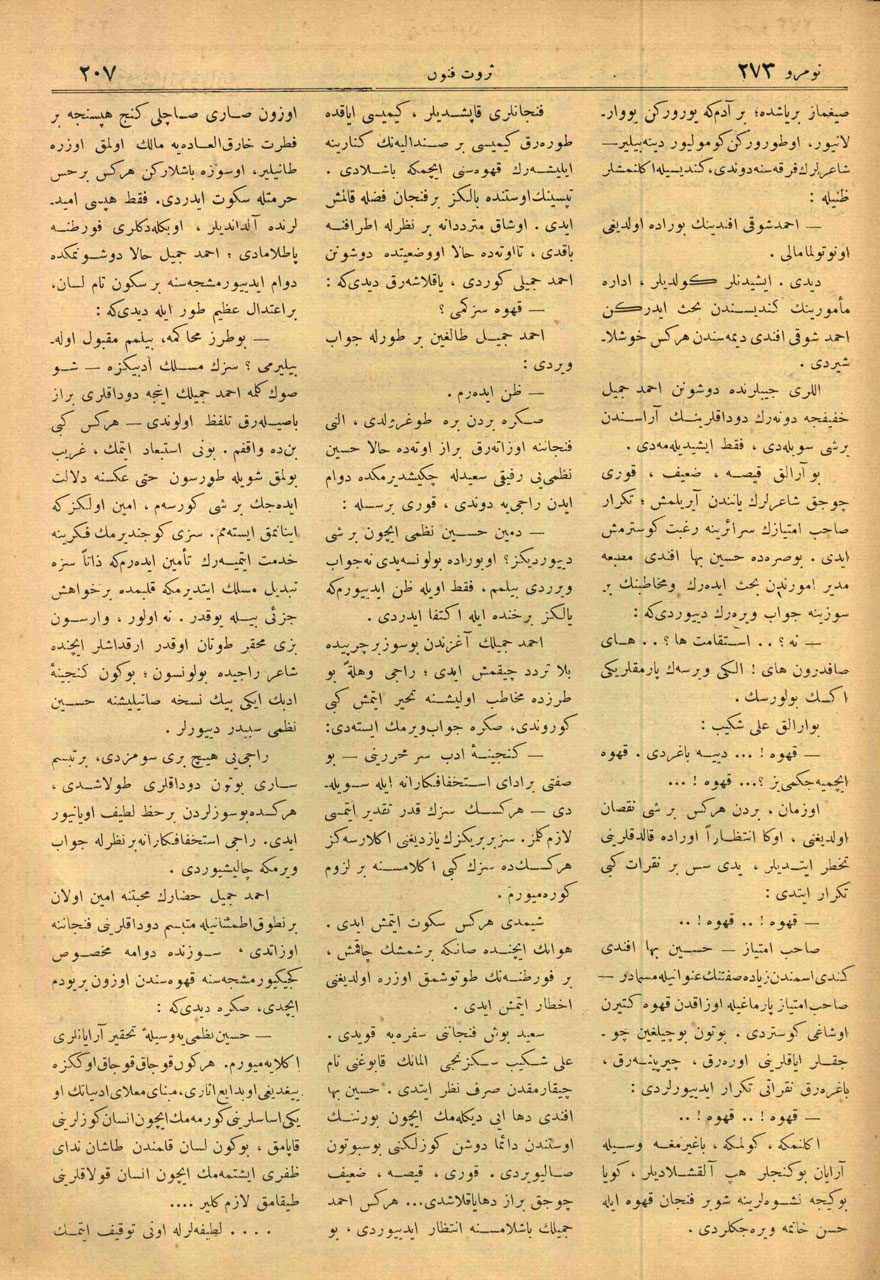 نومرو ٢٧٣
ثروت فنون
٢٠٧
صیغماز بر یاشده؛ بر آدمكه یورورکن یووار‌ـ
لانیور، اوطورورکن کومولیور دینه‌بیلیر —
شاعرلرك فرقه‌سنه دوندی، کندیسیله اکلنمشلر
ظنیله :
— احمد شوقی افندینك بوراده اولدیغی
اونوتولمامالی .
دیدی . ایشیدنلر کولدیلر ، اداره
مأمورینك کندیسندن بحث ایدرکن
احمد شوقی افندی دیمه‌سندن هرکس خوشلا‌ـ
شیردی .
اللری جیبلرنده دوشونن احمد جمیل
خفیفجه دونه‌رك دوداقلرینك آراسندن
برشی سویله‌دی ، فقط ایشیدیله‌مه‌دی .
بو آرالق قیصه ، ضعیف ، قوری
چوجق شاعرلرك یانندن آیریلمش ؛ تکرار
صاحب امتیازك سرائرینه رغبت کوسترمش
ایدی . بوصره‌ده حسین بها افندی مطبعه
مدیر امورندن بحث ایده‌رك ومخاطبنك بر
سوزینه جواب ویره‌رك دییوردی‌که :
— نه ؟ . . استقامت ها ؟ . . های
صافدرون های ! الکی ویرسه‌ك پارمقلریکی
اکسك بولورسك .
بوارالق علی شکیب :
— قهوه ! ... دییه باغردی . قهوه
ایچمیه‌جکمی‌یز ؟ ... قهوه ! ...
اوزمان ، بردن هرکس بر شی نقصان
اولدیغنی ، اوکا انتظاراً اوراده قالدقلرینی
تخطر ایتدیلر ، یدی سس بر نقرات کبی
تکرار ایتدی :
— قهوه ! . . قهوه ! . .
صاحب امتیاز — حسین بها افندی
کندی اسمندن زیاده صفتنك عنوانیله مسمادر —
صاحب امتیاز پارماغیله اوزاقدن قهوه کتیرن
اوشاغی کوستردی . بوتون بوچیلغین چو‌ـ
جقلر ایاقلرینی اوره‌رق ، چیرپینه‌رق ،
باغره‌رق نقراتی تکرار ایدییورلردی :
— قهوه ! . . قهوه ! . .
اکلنمکه ، کولمکه ، باغیرمغه وسیله
آرایان بوکنجلر هپ آلقشلادیلر ، کویا
بوکیجه نشوه‌لرینه شو بر فنجان قهوه ایله
حسن خاتمه ویره‌جکلردی .
فنجانلری قاپیشدیلر ، کیمیسی ایاقده
طوره‌رق کیمیسی بر صندالیه‌نك کنارینه
ایلیشه‌رك قهوه‌سنی ایچمکه باشلادی .
تپسینك اوستنده یالکز برفنجان فضله قالمش
ایدی . اوشاق مترددانه بر نظرله اطرافنه
باقدی ، تااوته‌ده حالا اووضعیتده دوشونن
احمد جمیلی کوردی ، یاقلاشه‌رق دیدی‌که :
— قهوه سزکمی ؟
احمد جمیل طالغین بر طورله جواب
ویردی :
— ظن ایده‌رم .
صکره بردن بره طوغرولدی ، النی
فنجاننه اوزاته‌رق براز اوته‌ده حالا حسین
نظمی‌یی رفیقی سعیدله چکیشدیرمکده دوام
ایدن راجی‌یه دوندی ، قوری برسسله :
— دمین حسین نظمی ایچون بر شی
دییوردیکز؟ اوبوراده بولونسه‌یدی نه‌جواب
ویرردی بیلمم ، فقط اویله ظن ایدییورم‌که
یالکز برخنده ایله اکتفا ایدردی .
احمد جمیلك آغزندن بوسوز برچیرپیده
بلا تردد چیقمش ایدی ؛ راجی وهلةً بو
طرزده مخاطب اولیشنه تحیر ایتمش کبی
کوروندی، صکره جواب‌ویرمك ایسته‌دی:
— کنجینهٔ ادب سر محررینی — بو
صفتی برادای استخفافکارانه ایله سویله‌ـ
دی — هرکسك سزك قدر تقدیر ایتمسی
لازم‌کلمز. سزبربریکزك یازدیغنی اکلارسه‌کز
هرکسك‌ده سزك کبی اکلامسنه بر لزوم
کوره‌میورم .
شیمدی هرکس سکوت ایتمش ایدی .
هوانك ایچنده صانکه برشمشك چاقمش ،
بر فورطنه‌نك طوتوشمق اوزره اولدیغنی
اخطار ایتمش ایدی .
سعید بوش فنجاننی سفره‌یه قویدی .
علی شکیب سکزنجی المانك قابوغنی تام
چیقارمقدن صرف نظر ایتدی . حسین بها
افندی دها ایی دیکله‌مك ایچون بورننك
اوستندن دائما دوشن کوزلکنی بوسبوتون
صالیویردی . قوری ، قیصه ، ضعیف
چوجق براز دهایاقلاشدی... هرکس احمد
جمیلك باشلامسنه انتظار ایدییوردی ، بو
اوزون صاری صاچلی کنج هپسنجه بر
فطرت خارق‌العاده‌یه مالك اولمق اوزره
طانیلیر، اوسوزه باشلارکن هرکس برحس
حرمتله سکوت ایدردی. فقط هپسی امید‌ـ
لرنده آلداندیلر ، اوبکله‌دکلری فورطنه
پاطلامادی ؛ احمد جمیل حالا دوشونمکده
دوام ایدییورمشجه‌سنه برسکون تام لسان،
براعتدال عظیم طور ایله دیدی‌که :
— بوطرز محاکمه، بیلمم مقبول اوله‌ـ
بیلیرمی ؟ سزك مسلك ادبیکزه — شو
صوك کلمه احمد جمیلك اینجه دوداقلری براز
باصیله‌رق تلفظ اولوندی — هرکس کبی
بن‌ده واقفم . بونی استبعاد ایتمك ، غریب
بولمق شویله طورسون حتی عکسنه دلالت
ایده‌جك بر شی کورسه‌م ، امین اولکزکه
اینانمق ایسته‌مم. سزی کوجندیرمك فکرینه
خدمت ایتمیه‌رك تأمین ایده‌رم‌که ذاتاً سزه
تبدیل مسلك ایتدیرمکه قلبمده برخواهش
جزئی بیله یوقدر . نه اولور ، وارسون
بزی محقر طوتان اوقدر ارقداشلر ایچنده
شاعر راجیده بولونسون؛ بوکون کنجینهٔ
ادبك ایکی بیك نسخه صاتیلیشنه حسین
نظمی سببدر دییورلر .
راجی‌یی هیچ بری سومزدی، برتبسم
ساری بوتون دوداقلری طولاشدی ،
هرکسده بوسوزلردن برحظ لطیف اویانیور
ایدی. راجی استخفافکارانه برنظرله جواب
ویرمکه چالیشیوردی .
احمد جمیل حضارك محبتنه امین اولان
برنطوق اطمئنانیله متبسم دوداقلرینی فنجاننه
اوزاتدی، سوزنده دوامه مخصوص
کجیکیورمشجه‌سنه قهوه‌سندن اوزون بریودم
ایچدی، صکره دیدی‌که :
— حسین نظمی‌یه وسیلهٔ تحقیر آرایانلری
اکلایه‌میورم. هرکون قوجاق قوجاق اوککزه
ییغدیغی اوبدایع آثاری، مبنای معلای ادبیاتك او
یکی اساسلرینی کورمه‌مك ایچون انسان کوزلرینی
قاپامق ، بوکون لسان قلمندن طاشان ندای
ظفری ایشتمه‌مك ایچون انسان قولاقلرینی
طیقامق لازم کلیر ....
.... لطیفه‌لرله اونی توقیف ایتمك